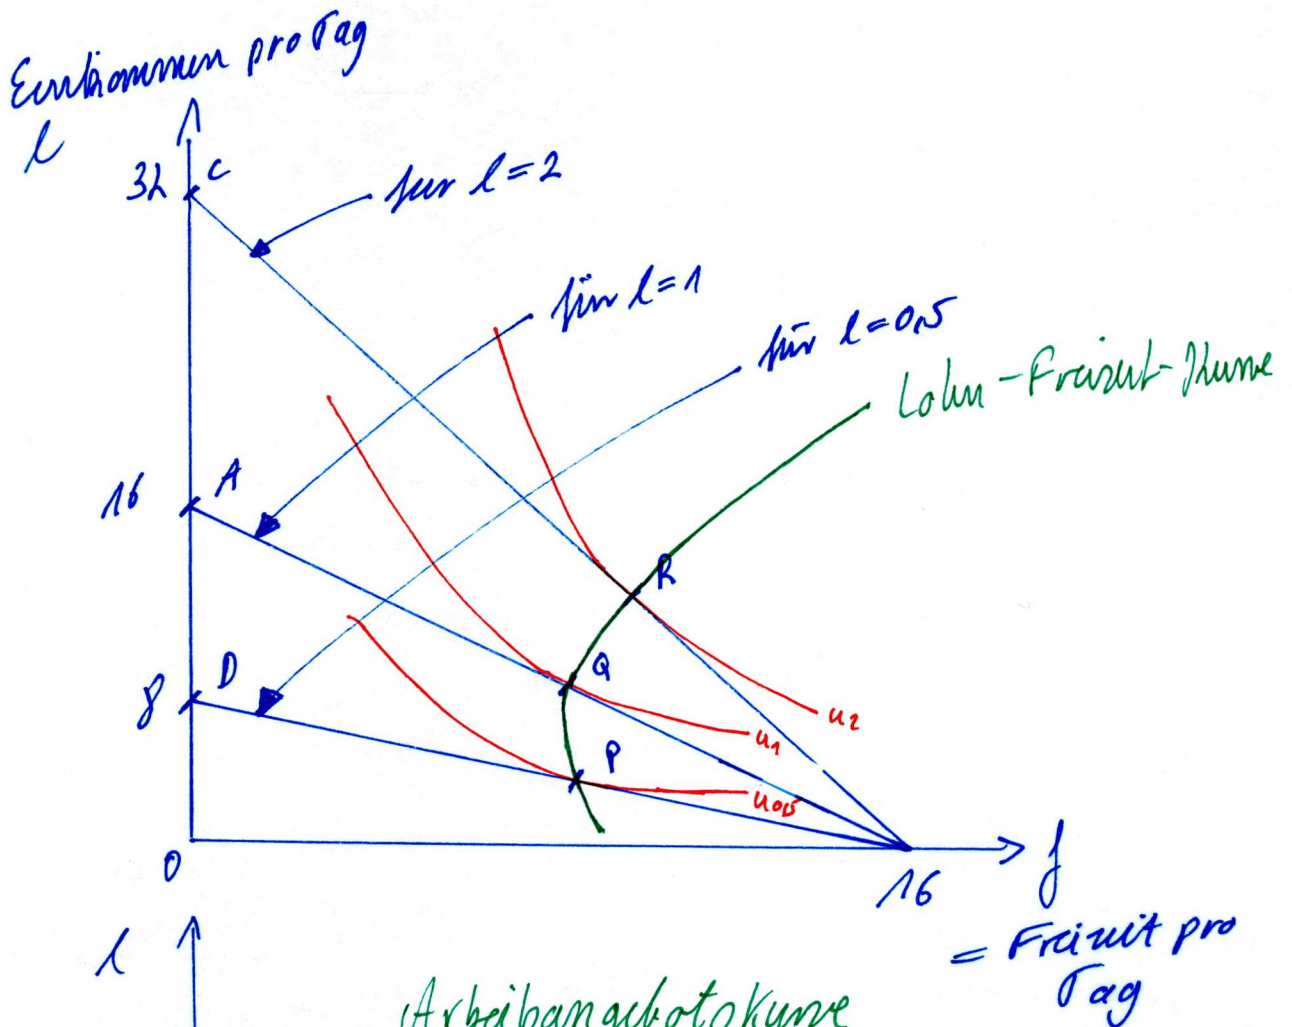 Einkommen pro Tag
l
32 C
für l=2
für l=1
für l=0,5
Lohn-Freizeit-Kurve
16 A
R
Q
8 D
P
u2
u1
u0,5
0
16
f
= Freizeit pro
Tag
l
Arbeitsangebotskurve